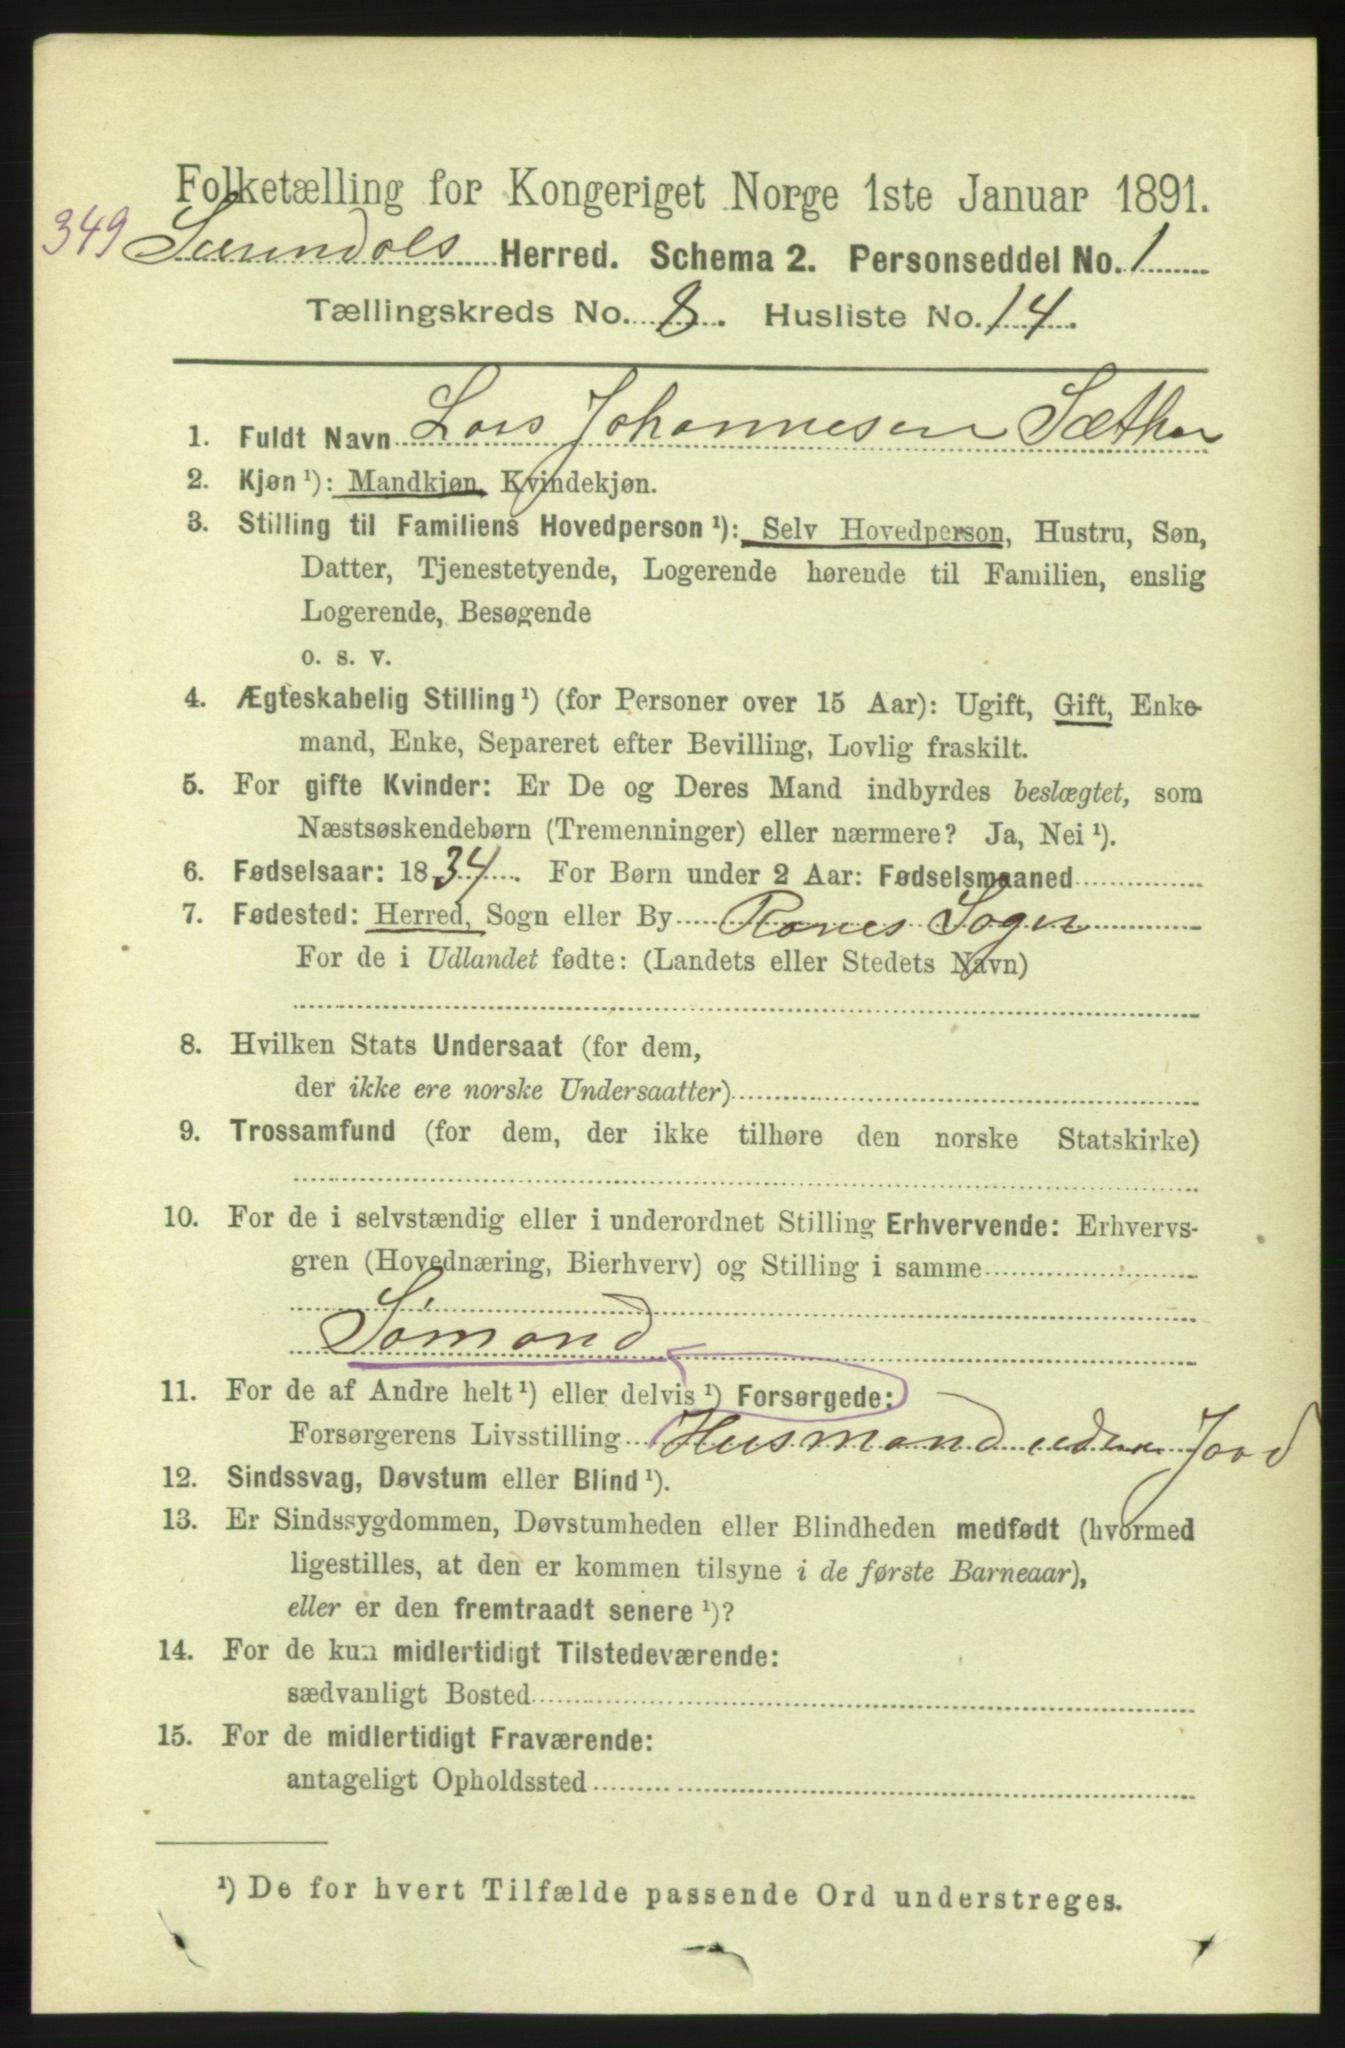 Folketælling for Kongeriget Norge 1ste Januar 1891.
349 Surendals Herred. Schema 2. Personseddel No. 1
Tællingskreds No. 8. Husliste No. 14.
1. Fuldt Navn Lars Johannesen Sæther
2. Kjøn ¹): Mandkjøn, Kvindekjøn.
3. Stilling til Familiens Hovedperson ¹): Selv Hovedperson, Hustru, Søn,
Datter, Tjenestetyende, Logerende hørende til Familien, enslig
Logerende, Besøgende
o. s. v.
4. Ægteskabelig Stilling ¹) (for Personer over 15 Aar): Ugift, Gift, Enke-
mand, Enke, Separeret efter Bevilling, Lovlig fraskilt.
5. For gifte Kvinder: Er De og Deres Mand indbyrdes beslægtet, som
Næstsøskendebørn (Tremenninger) eller nærmere? Ja, Nei ¹).
6. Fødselsaar: 1834. For Børn under 2 Aar: Fødselsmaaned
7. Fødested: Herred, Sogn eller By Ranes Sogn
For de i Udlandet fødte: (Landets eller Stedets Navn)
8. Hvilken Stats Undersaat (for dem,
der ikke ere norske Undersaatter)
9. Trossamfund (for dem, der ikke tilhøre den norske Statskirke)
10. For de i selvstændig eller i underordnet Stilling Erhvervende: Erhvervs-
gren (Hovednæring, Bierhverv) og Stilling i samme
Sømand
11. For de af Andre helt ¹) eller delvis ¹) Forsørgede:
Forsørgerens Livsstilling Husmand uden Jord
12. Sindssvag, Døvstum eller Blind ¹).
13. Er Sindssygdommen, Døvstumheden eller Blindheden medfødt (hvormed
ligestilles, at den er kommen tilsyne i de første Barneaar),
eller er den fremtraadt senere ¹)?
14. For de kun midlertidigt Tilstedeværende:
sædvanligt Bosted
15. For de midlertidigt Fraværende:
antageligt Opholdssted
¹) De for hvert Tilfælde passende Ord understreges.